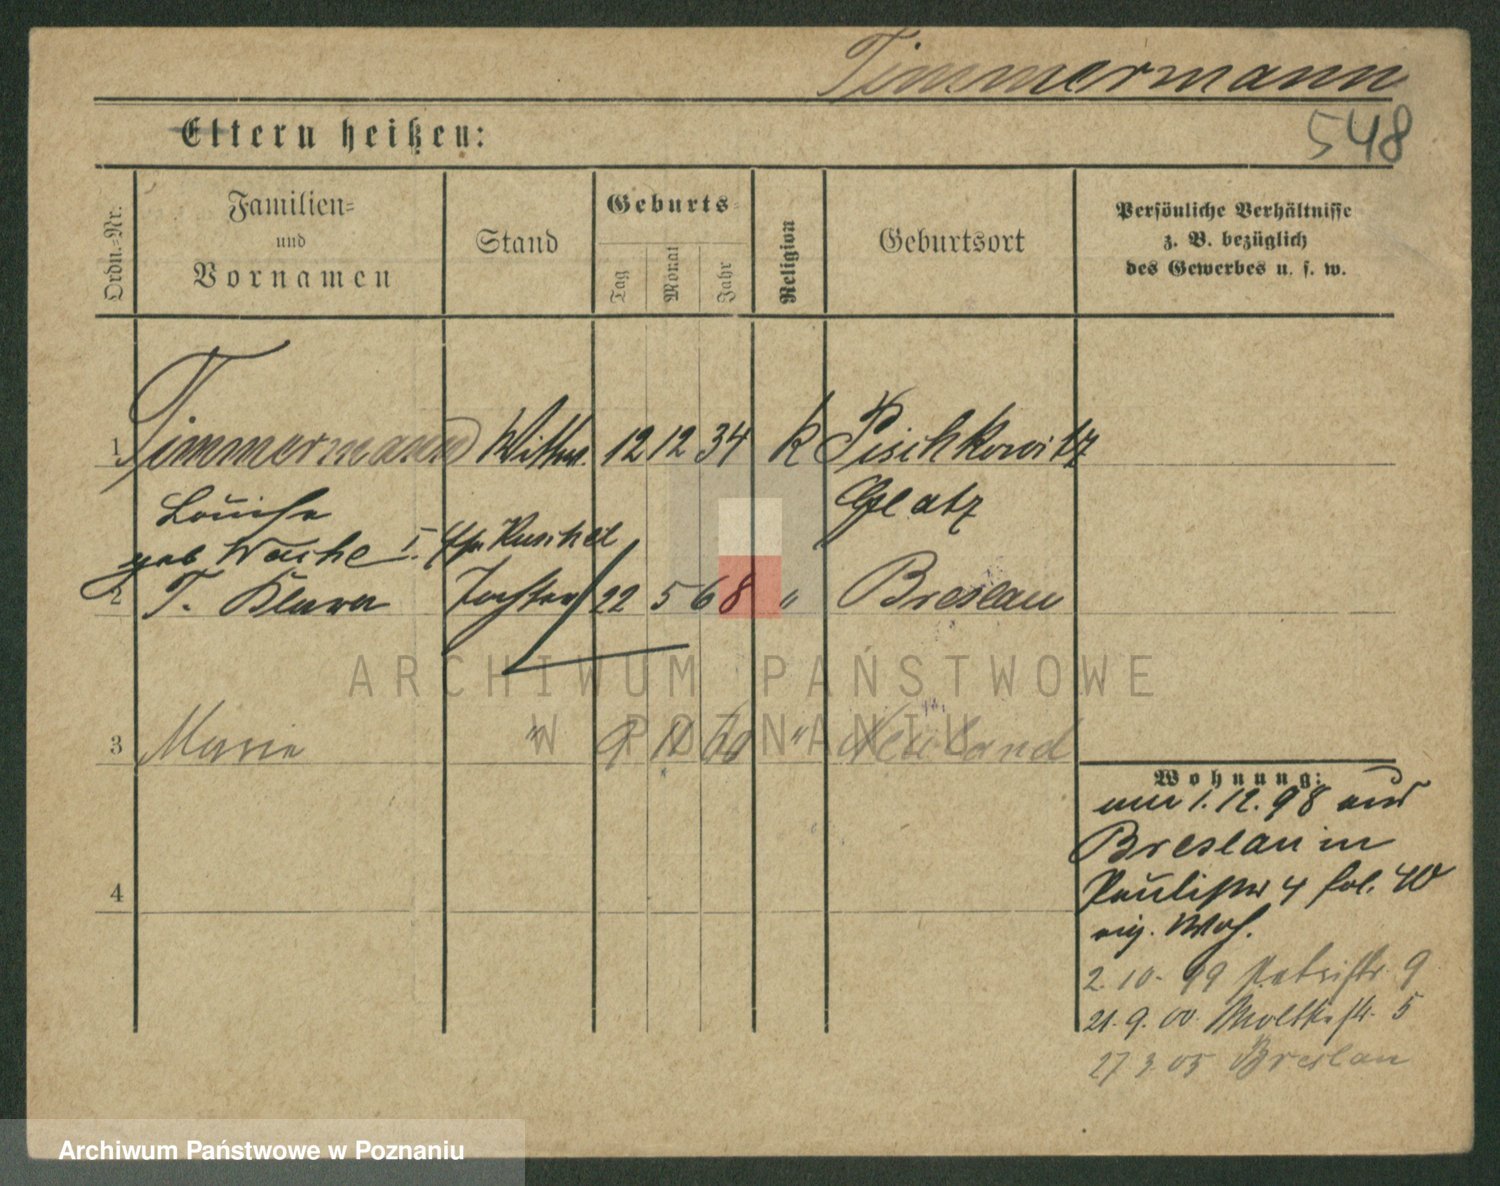 Timmermann
548
Eltern heißen:
Ordn.=Nr.
Familien=
und
Vornamen
Stand
Geburts=
Tag
Monat
Jahr
Religion
Geburtsort
Persönliche Verhältnisse
z. B. bezüglich
des Gewerbes u. s. w.
1 Timmermann Wittwe. 12 12 34 k Pischkowitz
Louise Glatz
geb Wache I.
2 T. Klara Tochter 22 5 68 " Breslau
ARCHIWUM PAŃSTWOWE
W POZNANIU
3 Marie " 9 60 " Neuland
Wohnung:
am 1.12.98 aus
Breslau in
Paulistr 4 40
eig. Woh.
4
2.10.99 Petristr. 9
21.9.00. Moltkestr. 5
27 3 05 Breslau
Archiwum Państwowe w Poznaniu